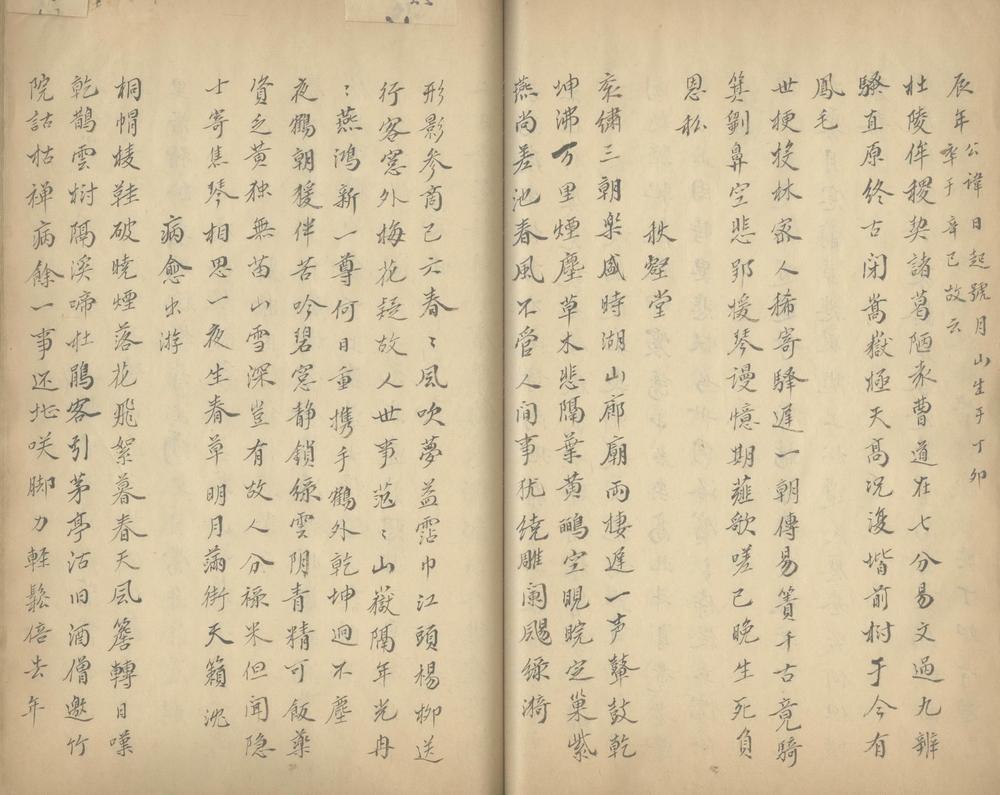 辰年公諱日起號月山生于丁卯
卒于辛巳故云
杜陵侔稷契諸葛陋蕭曹道在七分易文過九辨
騷直原終古閉嵩嶽極天高況復堦前樹于今有
鳳毛
世梗投林密人稀寄驛遲一朝傳易簀千古竟騎
箕劓鼻空悲郢援琴謾憶期薤歌嗟已晚生死負
恩私
秋壑堂
袞繡三朝樂盛時湖山廊廟両棲遲一声鼙鼓乾
坤沸万里煙塵草木悲隔葉黄鸝空睍睆定巢紫
燕尚差池春風不管人间事犹繞雕闌颺緑漪
形影参商已六春〻風吹夢益霑巾江頭楊柳送
行客窓外梅花疑故人世事茫〻山嶽隔年光冉
〻燕鴻新一尊何日重携手鶴外乾坤迥不塵
夜鶴朝猨伴苦吟碧窓静鎖緑雲阴青精可飯藥
資乏黄独無苗山雪深豈有故人分禄米但闻隐
士寄焦琴相思一夜生春草明月滿街天籟沈
病愈出游
桐帽椶鞋破曉煙落花飛絮暮春天風簷轉日嘆
乾鵲雲樹隔溪啼杜鵑客引茅亭沽旧酒僧邀竹
院話枯禅病餘一事还地咲脚力輕鬆倍去年